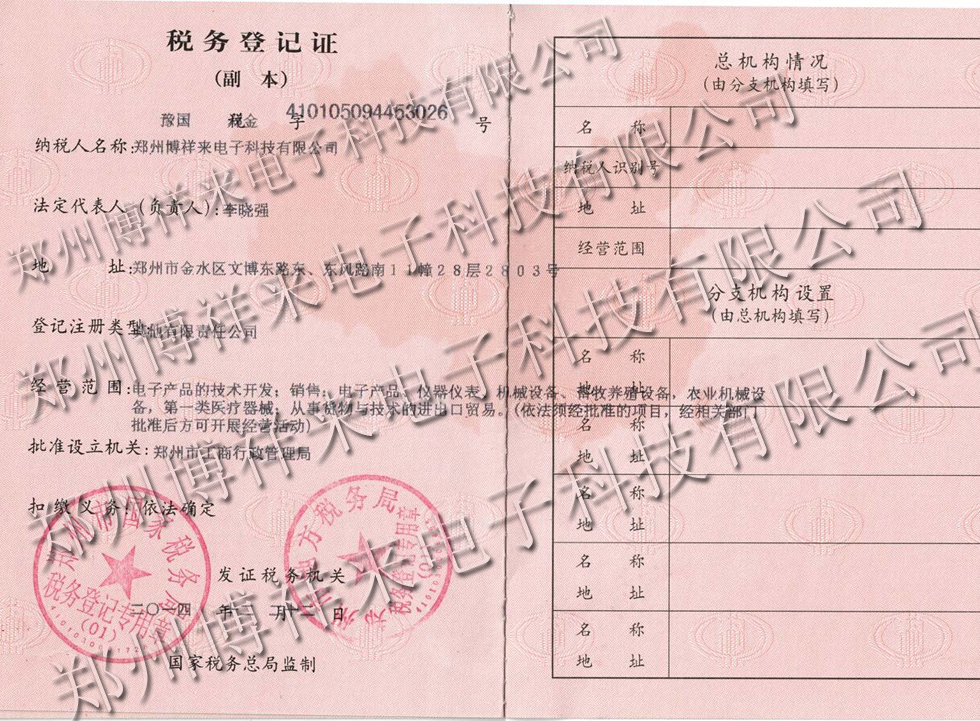 税务登记证
(副 本)
豫国 税金 字 410105094453026 号
纳税人名称:郑州博祥来电子科技有限公司
法定代表人(负责人):李晓强
地 址:郑州市金水区文博东路东、东风路南11幢28层2803号
登记注册类型 其他有限责任公司
经营范围:电子产品的技术开发;销售:电子产品、仪器仪表、机械设备、畜牧养殖设备,农业机械设
备,第一类医疗器械;从事货物与技术的进出口贸易。(依法须经批准的项目,经相关部门
批准后方可开展经营活动)
批准设立机关:郑州市工商行政管理局
扣缴义务:依法确定
发证税务机关
二〇一四 年 月 日
国家税务总局监制
郑州市国家税务局
税务登记专用章
(01)
地方税务局
税务登记专用章
(01)
总机构情况
(由分支机构填写)
名 称
纳税人识别号
地 址
经营范围
分支机构设置
(由总机构填写)
名 称
地 址
名 称
地 址
名 称
地 址
名 称
地 址
名 称
地 址
郑州博祥来电子科技有限公司
郑州博祥来电子科技有限公司
郑州博祥来电子科技有限公司
郑州博祥来电子科技有限公司